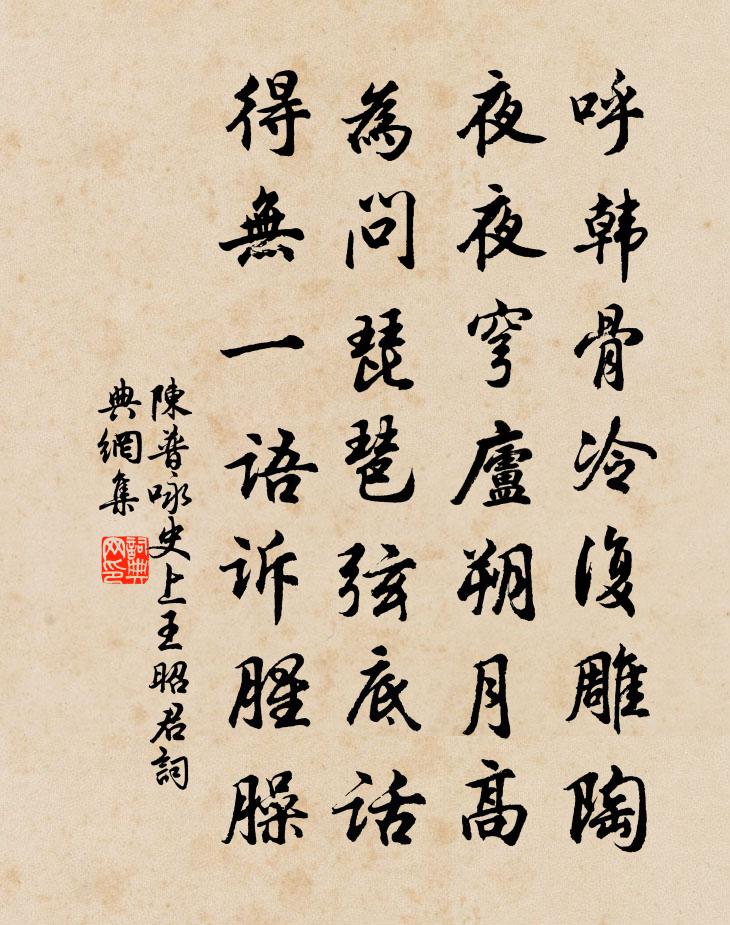 呼韩骨冷復雕陶
夜夜穹廬朔月高
為問琵琶弦底话
得無一语诉腥臊
陳普咏史上王昭君詞
典網集
詞典网印